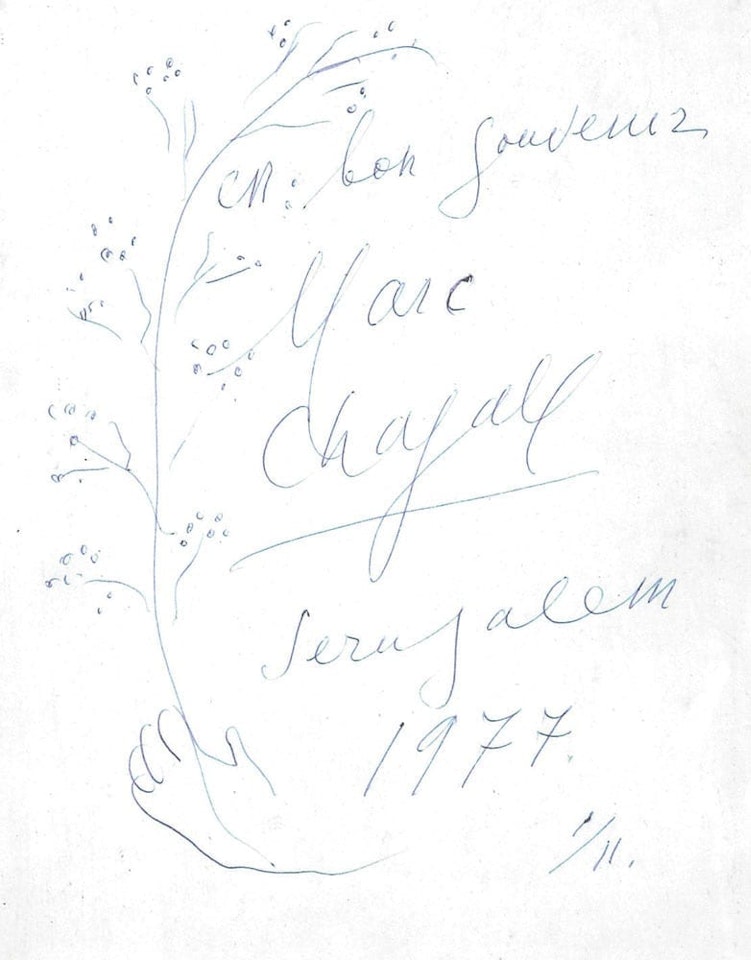 en bon souvenir
Marc
Chagall
Jerusalem
1977.
1/II.